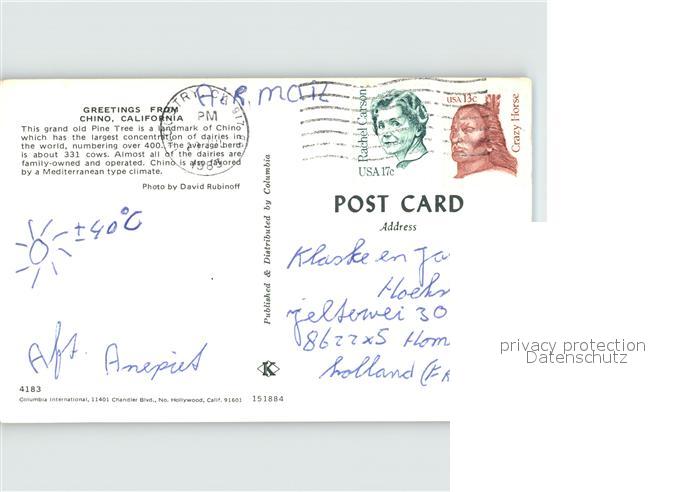 GREETINGS FROM
CHINO, CALIFORNIA
This grand old Pine Tree is a landmark of Chino
which has the largest concentration of dairies in
the world, numbering over 400. The average herd
is about 331 cows. Almost all of the dairies are
family-owned and operated. Chino is also favored
by a Mediterranean type climate.
Photo by David Rubinoff
AiR. MAiL
PM
Rachel Carson
USA 17c
USA 13c
Crazy Horse
Published & Distributed by Columbia
POST CARD
Address
±40°C
Klaske en Ja
Hoeks
jelterwei 30
8622XS Hom
holland (FR
Aft. Anepiet
K
4183
Columbia International, 11401 Chandler Blvd., No. Hollywood, Calif. 91601
151884
privacy protection
Datenschutz